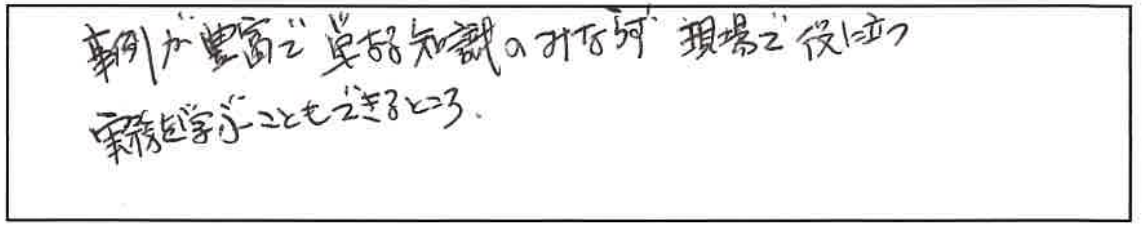 事例が豊富で単なる知識のみならず現場で役に立つ
実務を学ぶこともできるところ.